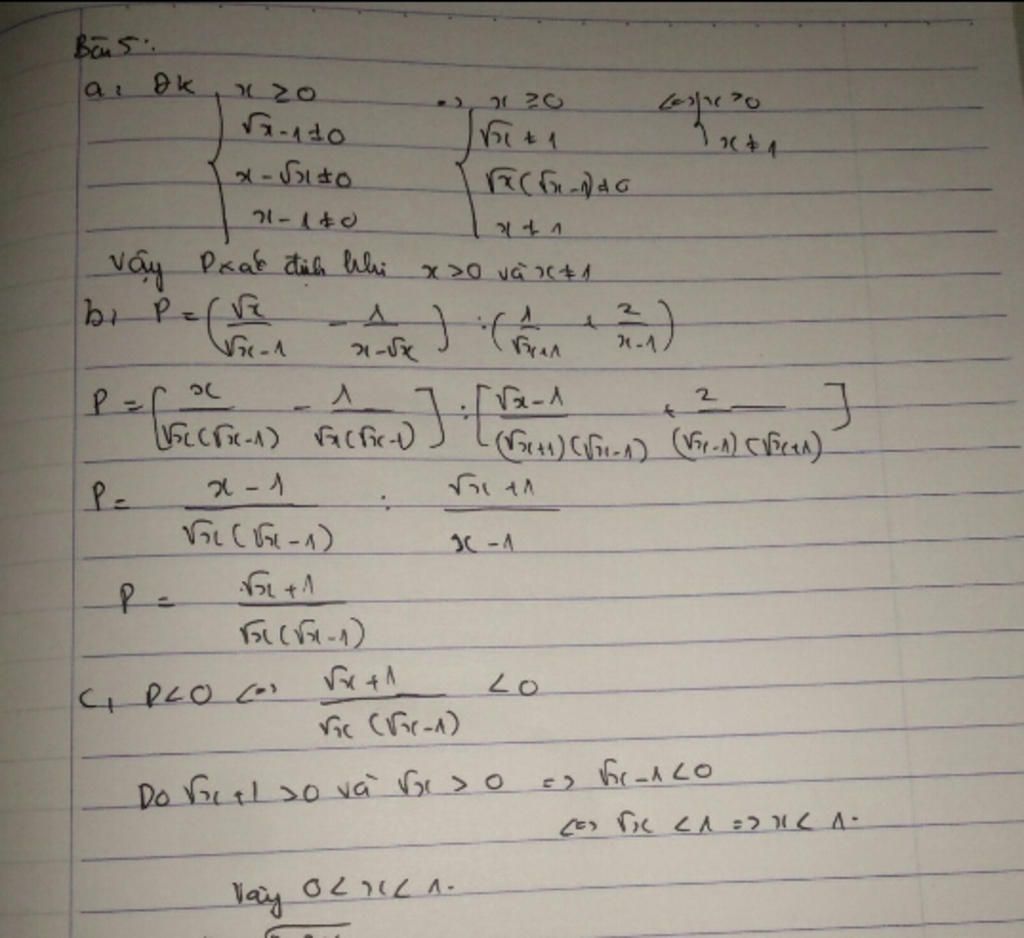 Bài 5:
a, ĐK { x ≥ 0 => { x ≥ 0 <=> { x > 0
√x - 1 ≠ 0 √x ≠ 1 x ≠ 1
x - √x ≠ 0 √x(√x - 1) ≠ 0
x - 1 ≠ 0 x ≠ 1
Vậy P xác định khi x > 0 và x ≠ 1
b, P = (√x/(√x - 1) - 1/(x - √x)) : (1/(√x + 1) + 2/(x - 1))
P = [x/(√x(√x - 1)) - 1/(√x(√x - 1))] : [(√x - 1)/((√x + 1)(√x - 1)) + 2/((√x - 1)(√x + 1))]
P = (x - 1)/(√x(√x - 1)) : (√x + 1)/(x - 1)
P = (√x + 1)/(√x(√x - 1))
c, P < 0 <=> (√x + 1)/(√x(√x - 1)) < 0
Do √x + 1 > 0 và √x > 0 => √x - 1 < 0
<=> √x < 1 => x < 1.
Vậy 0 < x < 1.